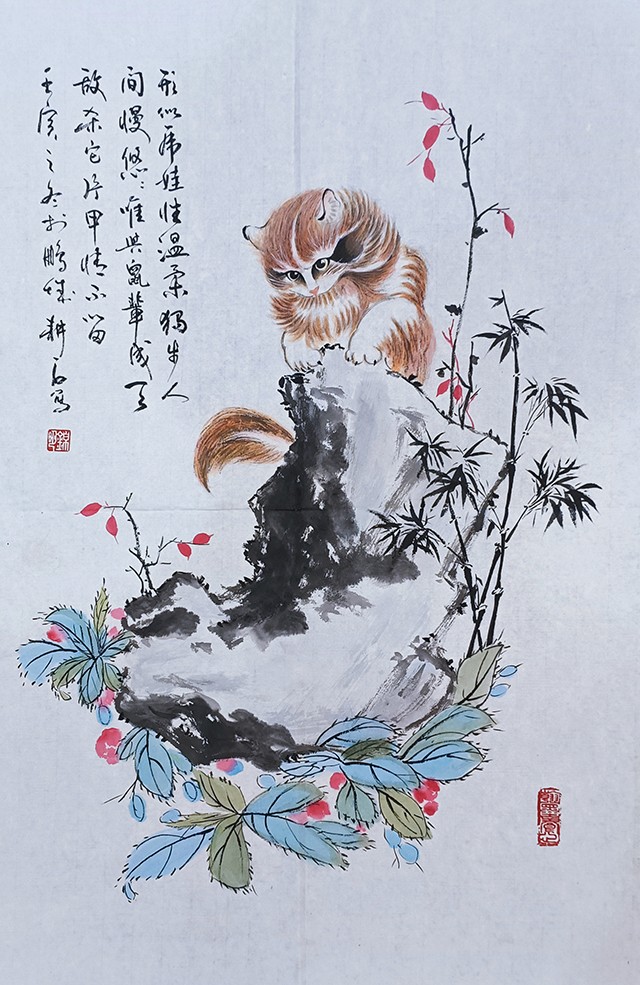 形似虎娃性温柔独步人
间慢悠悠唯与鼠輩成天
敌杀它片甲情不留
壬寅之冬于鹏城耕石写